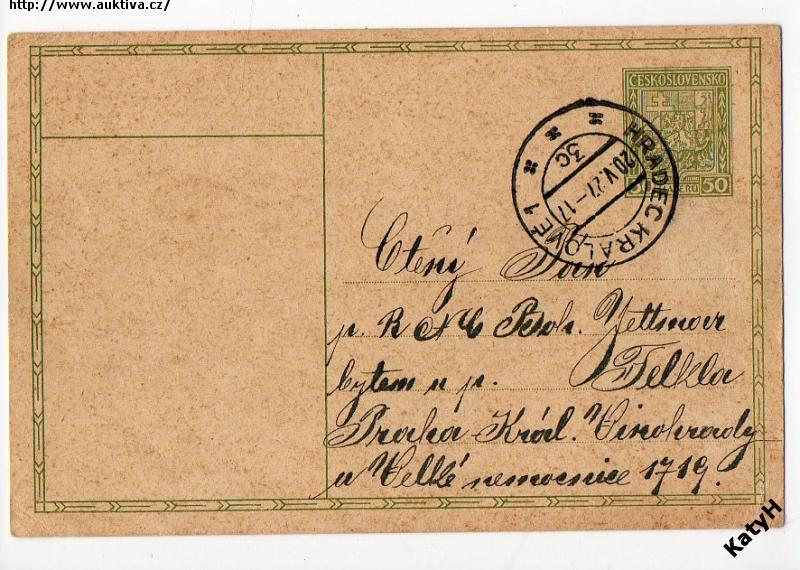 http://www.auktiva.cz/
ČESKOSLOVENSKO
50
HRADEC KRÁLOVÉ 1
3c
20.V.27-17
Ctěný Pan
p. R Boh. Jettmar
bytem u p. Felkla
Praha Král. Vinohrady
u Velké nemocnice 1719.
KatyH